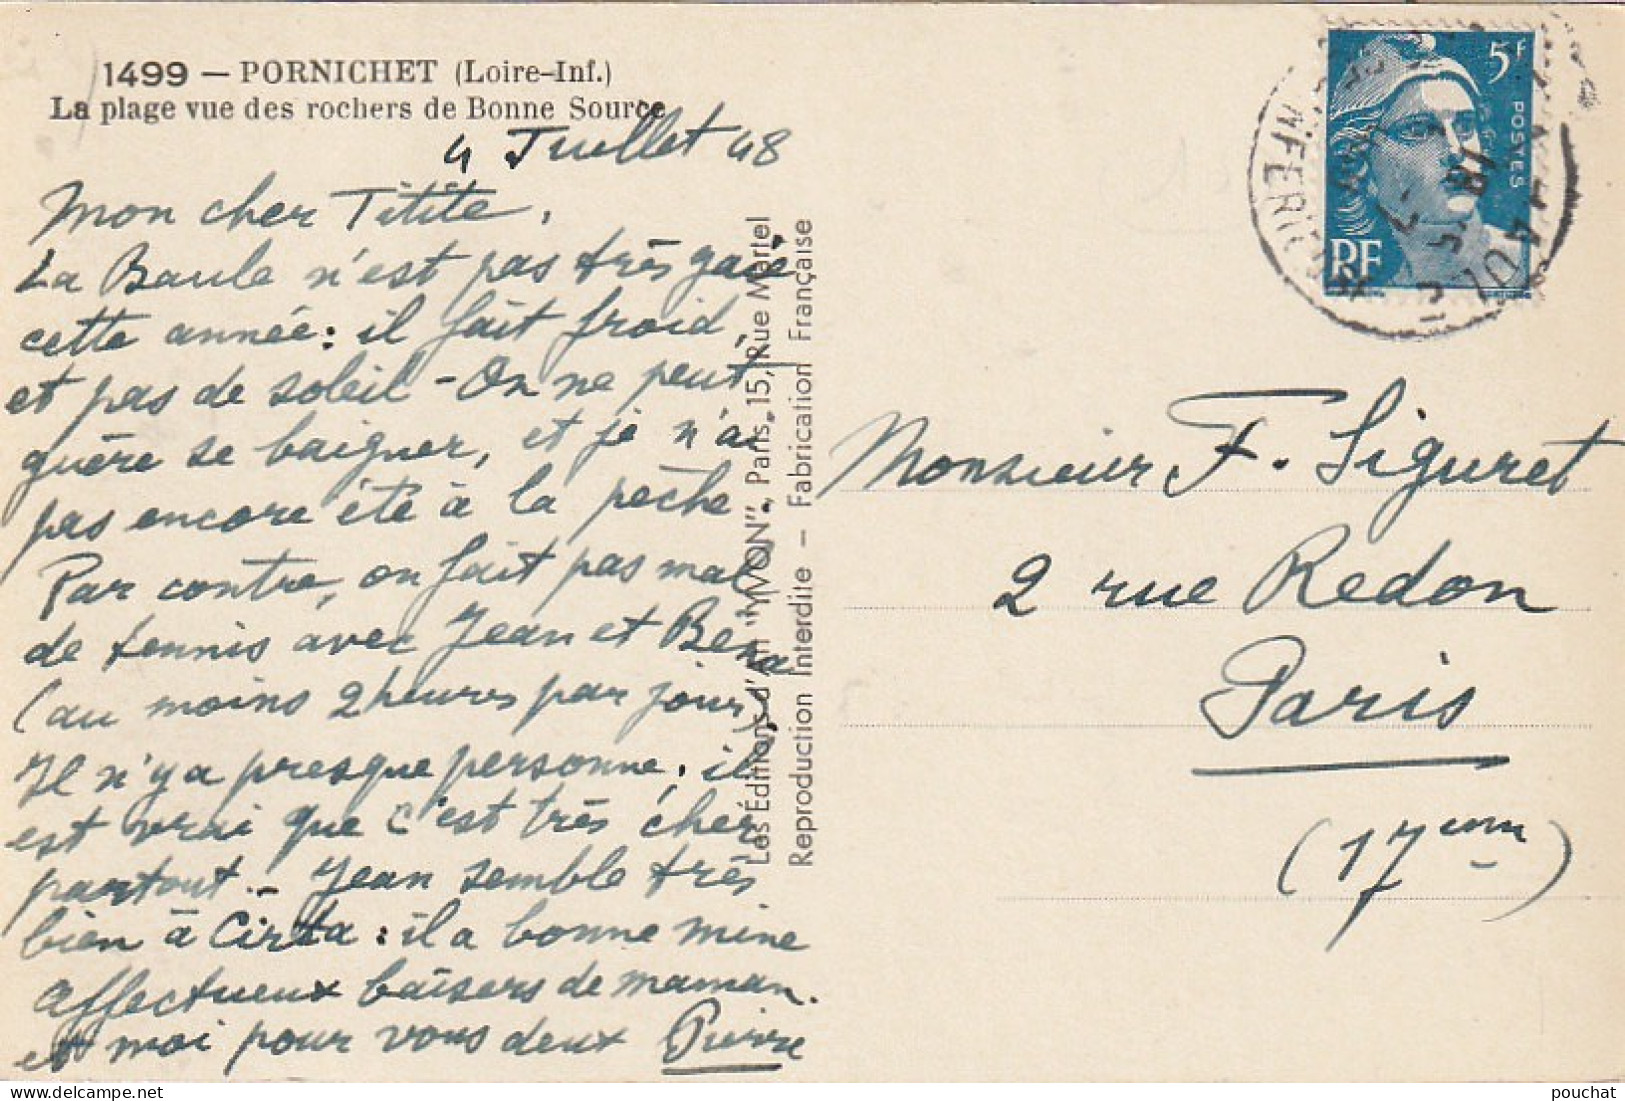 1499 — PORNICHET (Loire-Inf.)
La plage vue des rochers de Bonne Source
4 Juillet 48
Mon cher Titite,
La Baule n'est pas très gaie
cette année : il fait froid,
et pas de soleil - On ne peut
guère se baigner, et je n'ai
pas encore été à la pêche.
Par contre, on fait pas mal
de tennis avec Jean et
(au moins 2 heures par jour).
Il n'y a presque personne. il
est vrai que c'est très cher
partout - Jean semble très
bien à Cirta : il a bonne mine
Affectueux baisers de maman.
et moi pour vous deux Pierre
Les Éditions d'Art "YVON", Paris, 15, Rue Martel
Reproduction Interdite — Fabrication Française
5F
POSTES
RF
LOIRE INFERIEURE
18 15
4 -7
Monsieur F. Siguret
2 rue Redon
Paris
(17eme)
pouchat